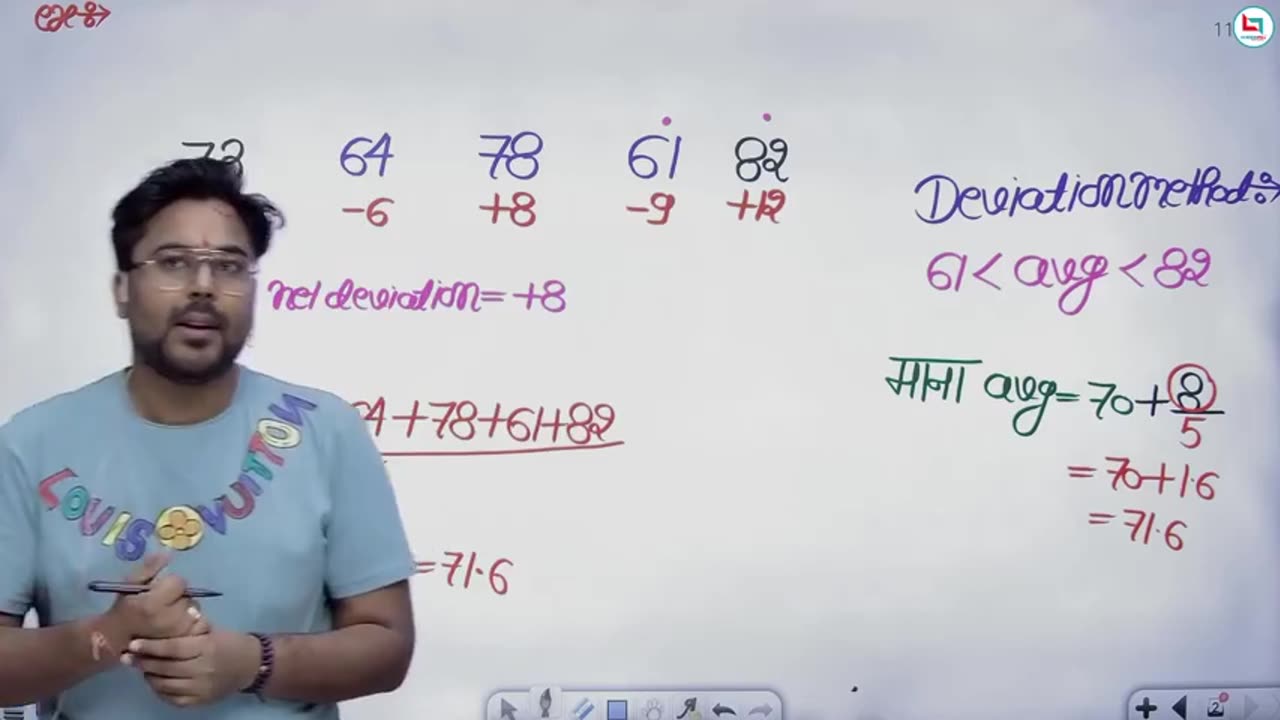 ex:→
11
73 64 78 61 82
-6 +8 -9 +12
net deviation = +8
4+78+61+82
= 71.6
Deviation method:→
61 < avg < 82
माना avg = 70 + 8
5
= 70 + 1.6
= 71.6
LOUIS VUITTON
2